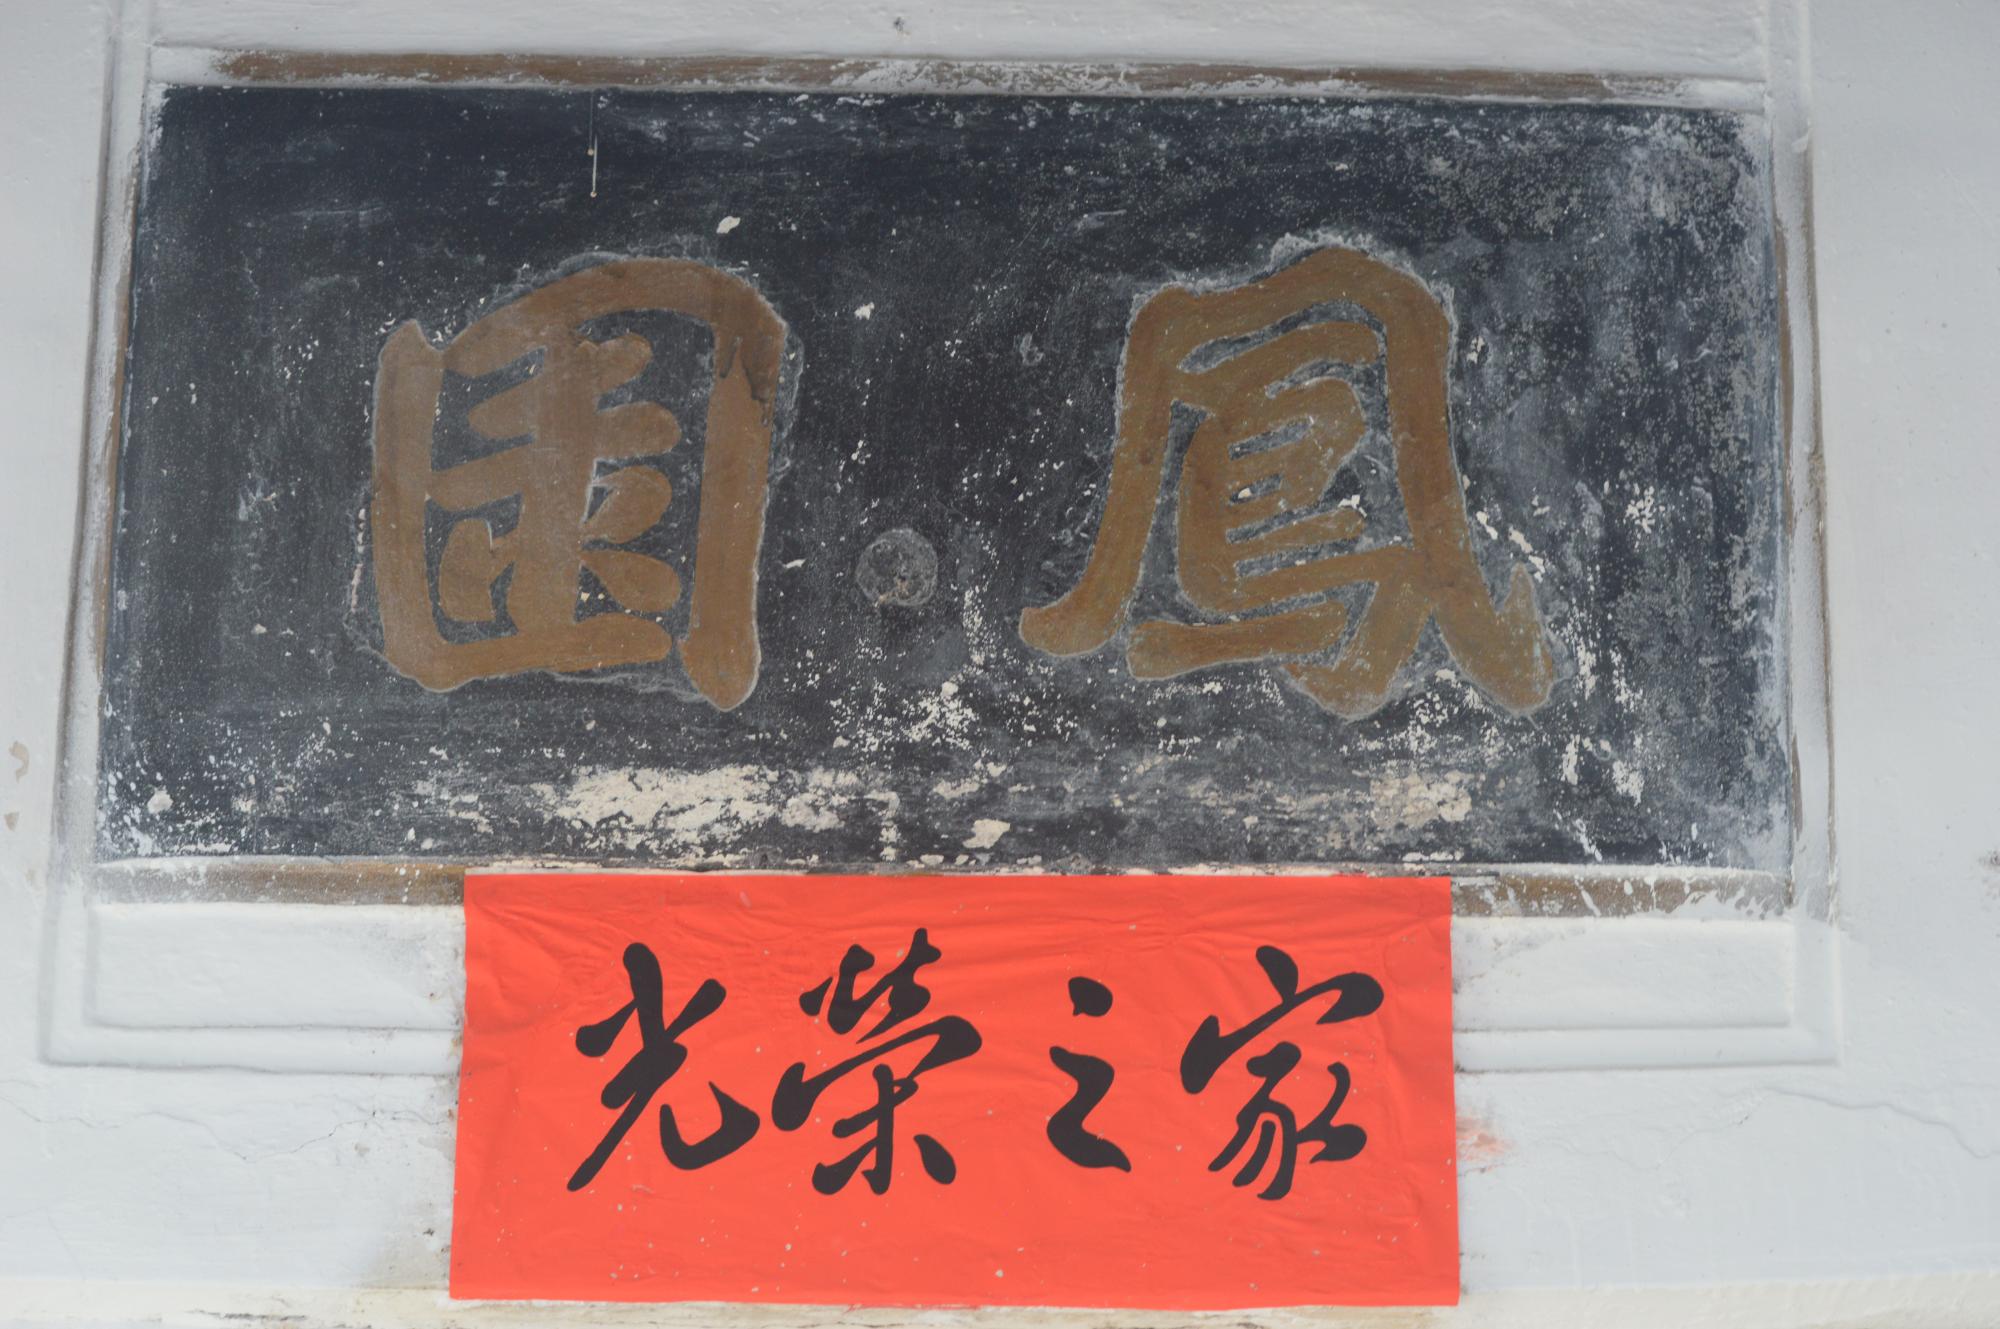 鳳園
光榮之家